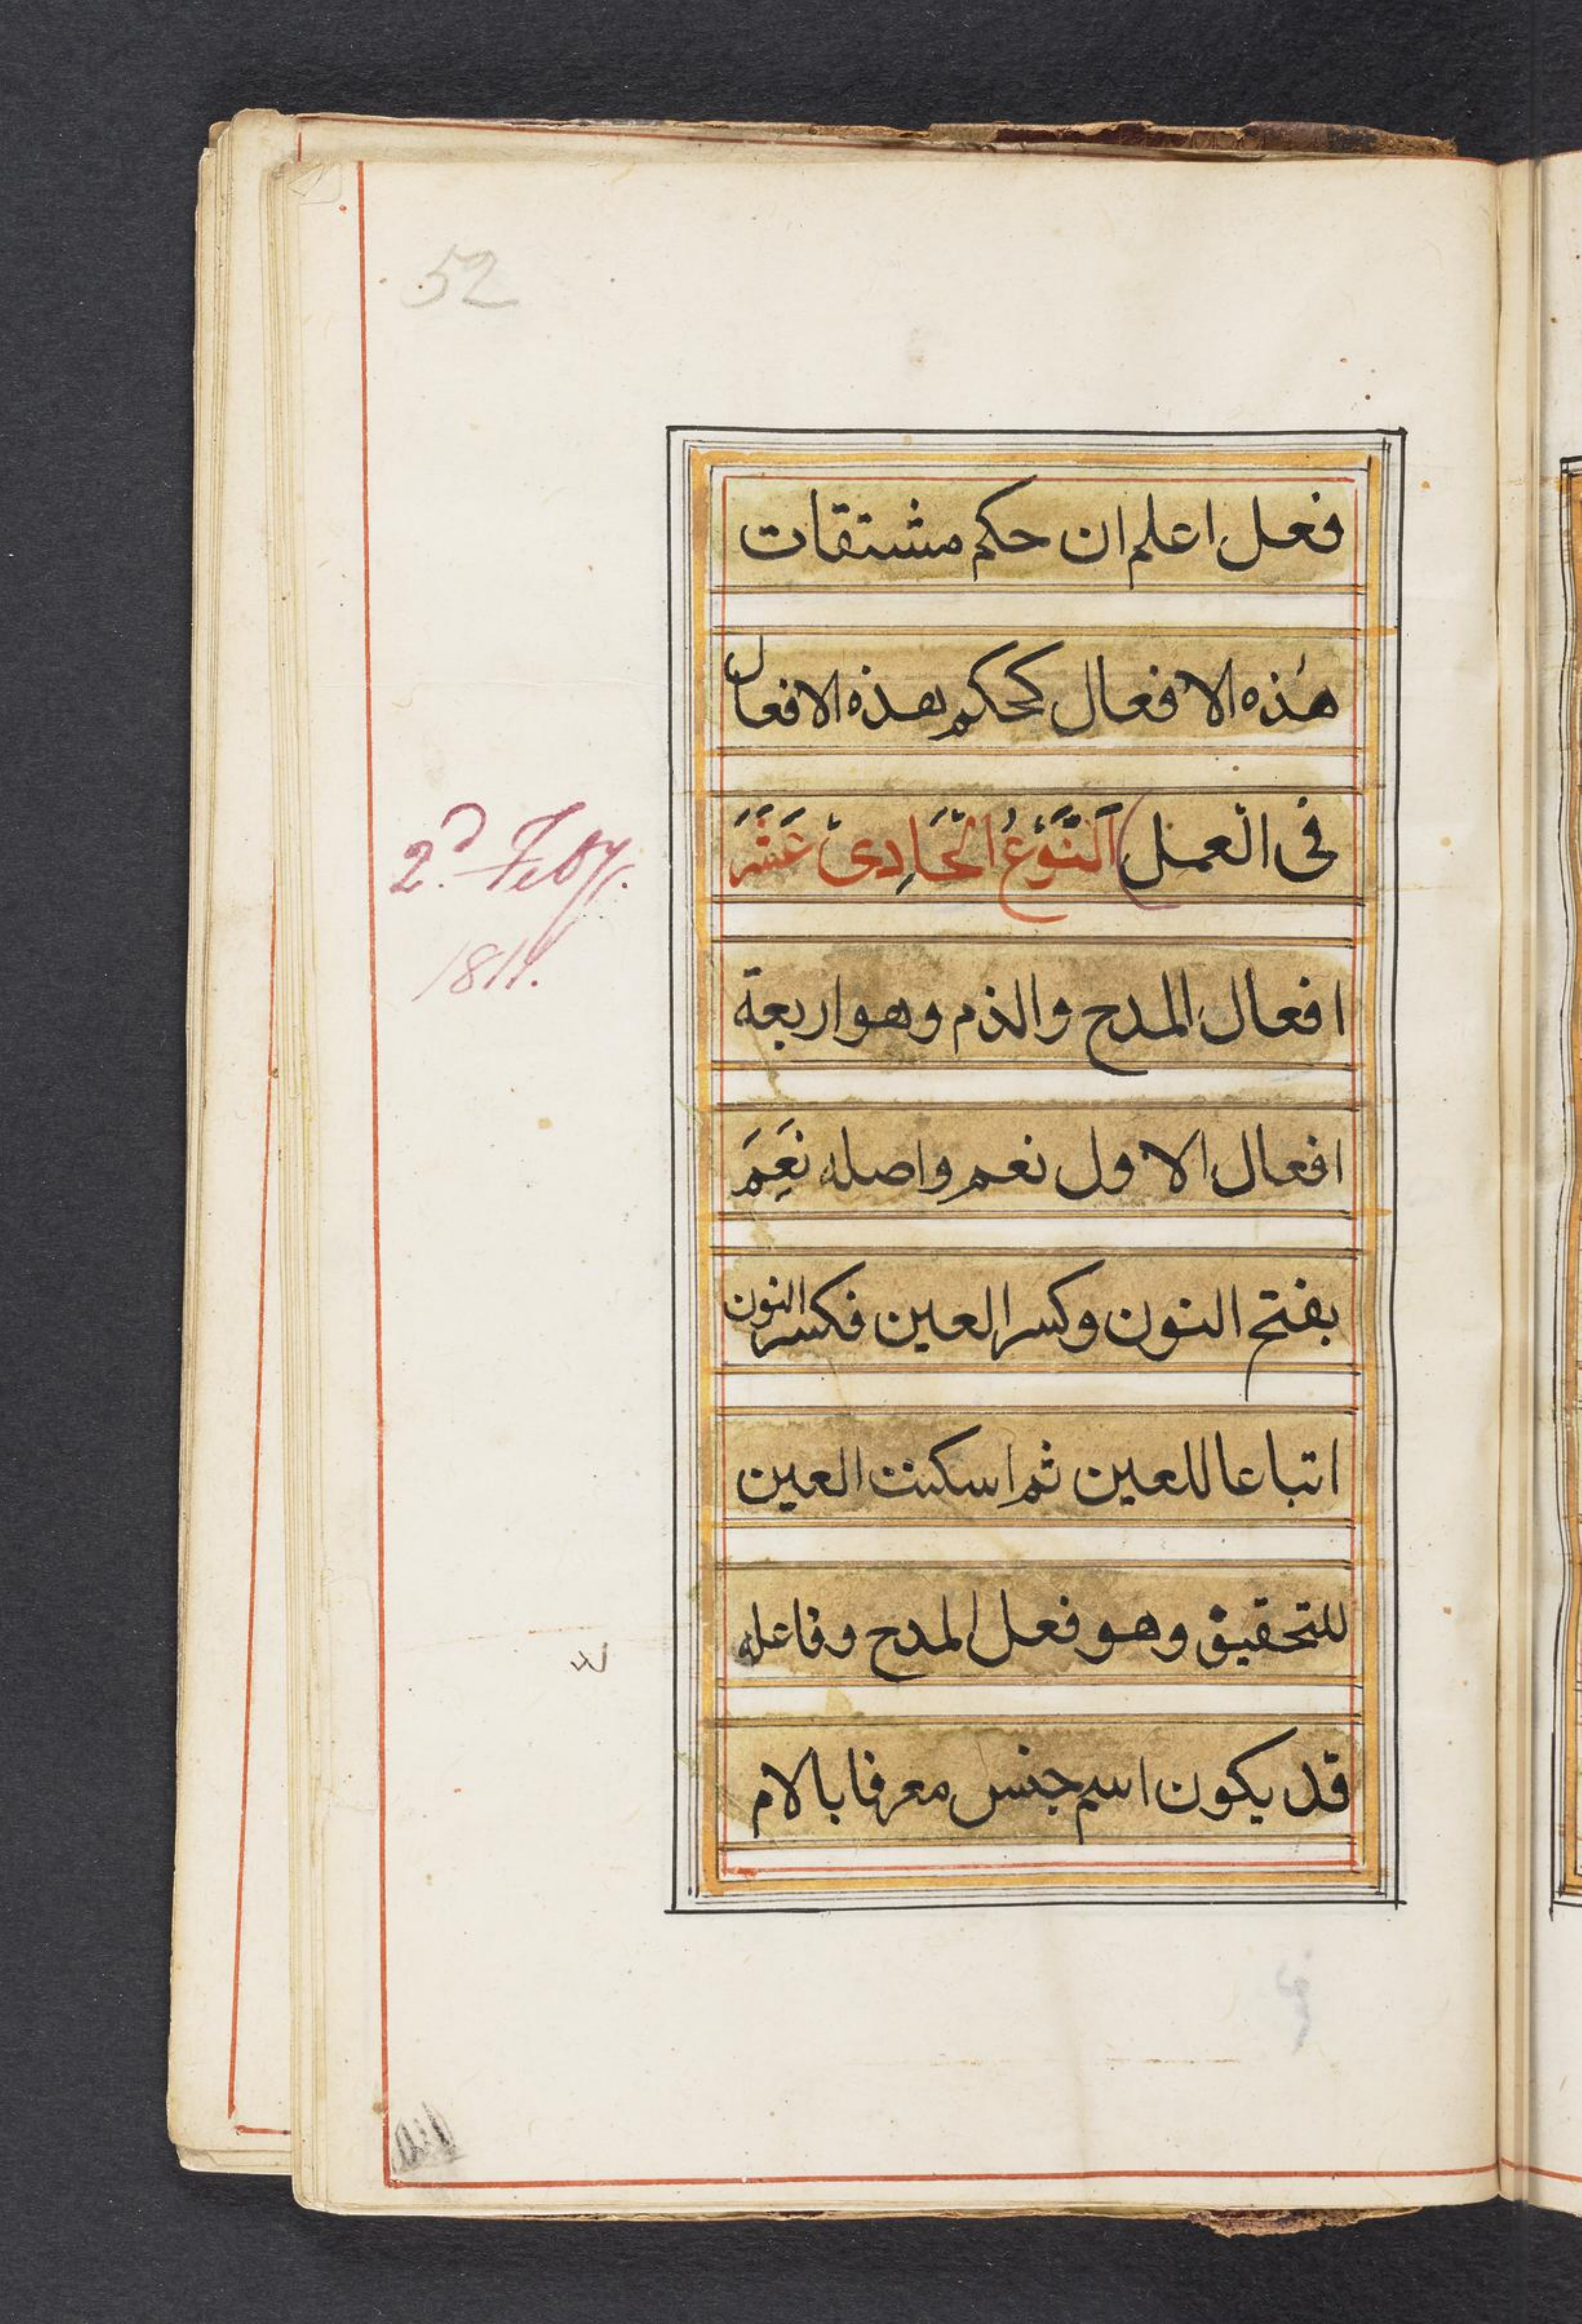 52
فعل اعلم ان حكم مشتقات
هذه الافعال كحكم هذه الافعال
فى العمل اَلنَّوْعُ الْحَادِىْ عَشَرَ
2d. Feby.
افعال المدح والذم وهو اربعة
افعال الاول نعم واصله نَعِمَ
بفتح النون وكسر العين فكسر النون
اتباعا للعين ثم اسكنت العين
للتحقيق وهو فعل المدح وفاعله
قد يكون اسم جنس معرفا بالام